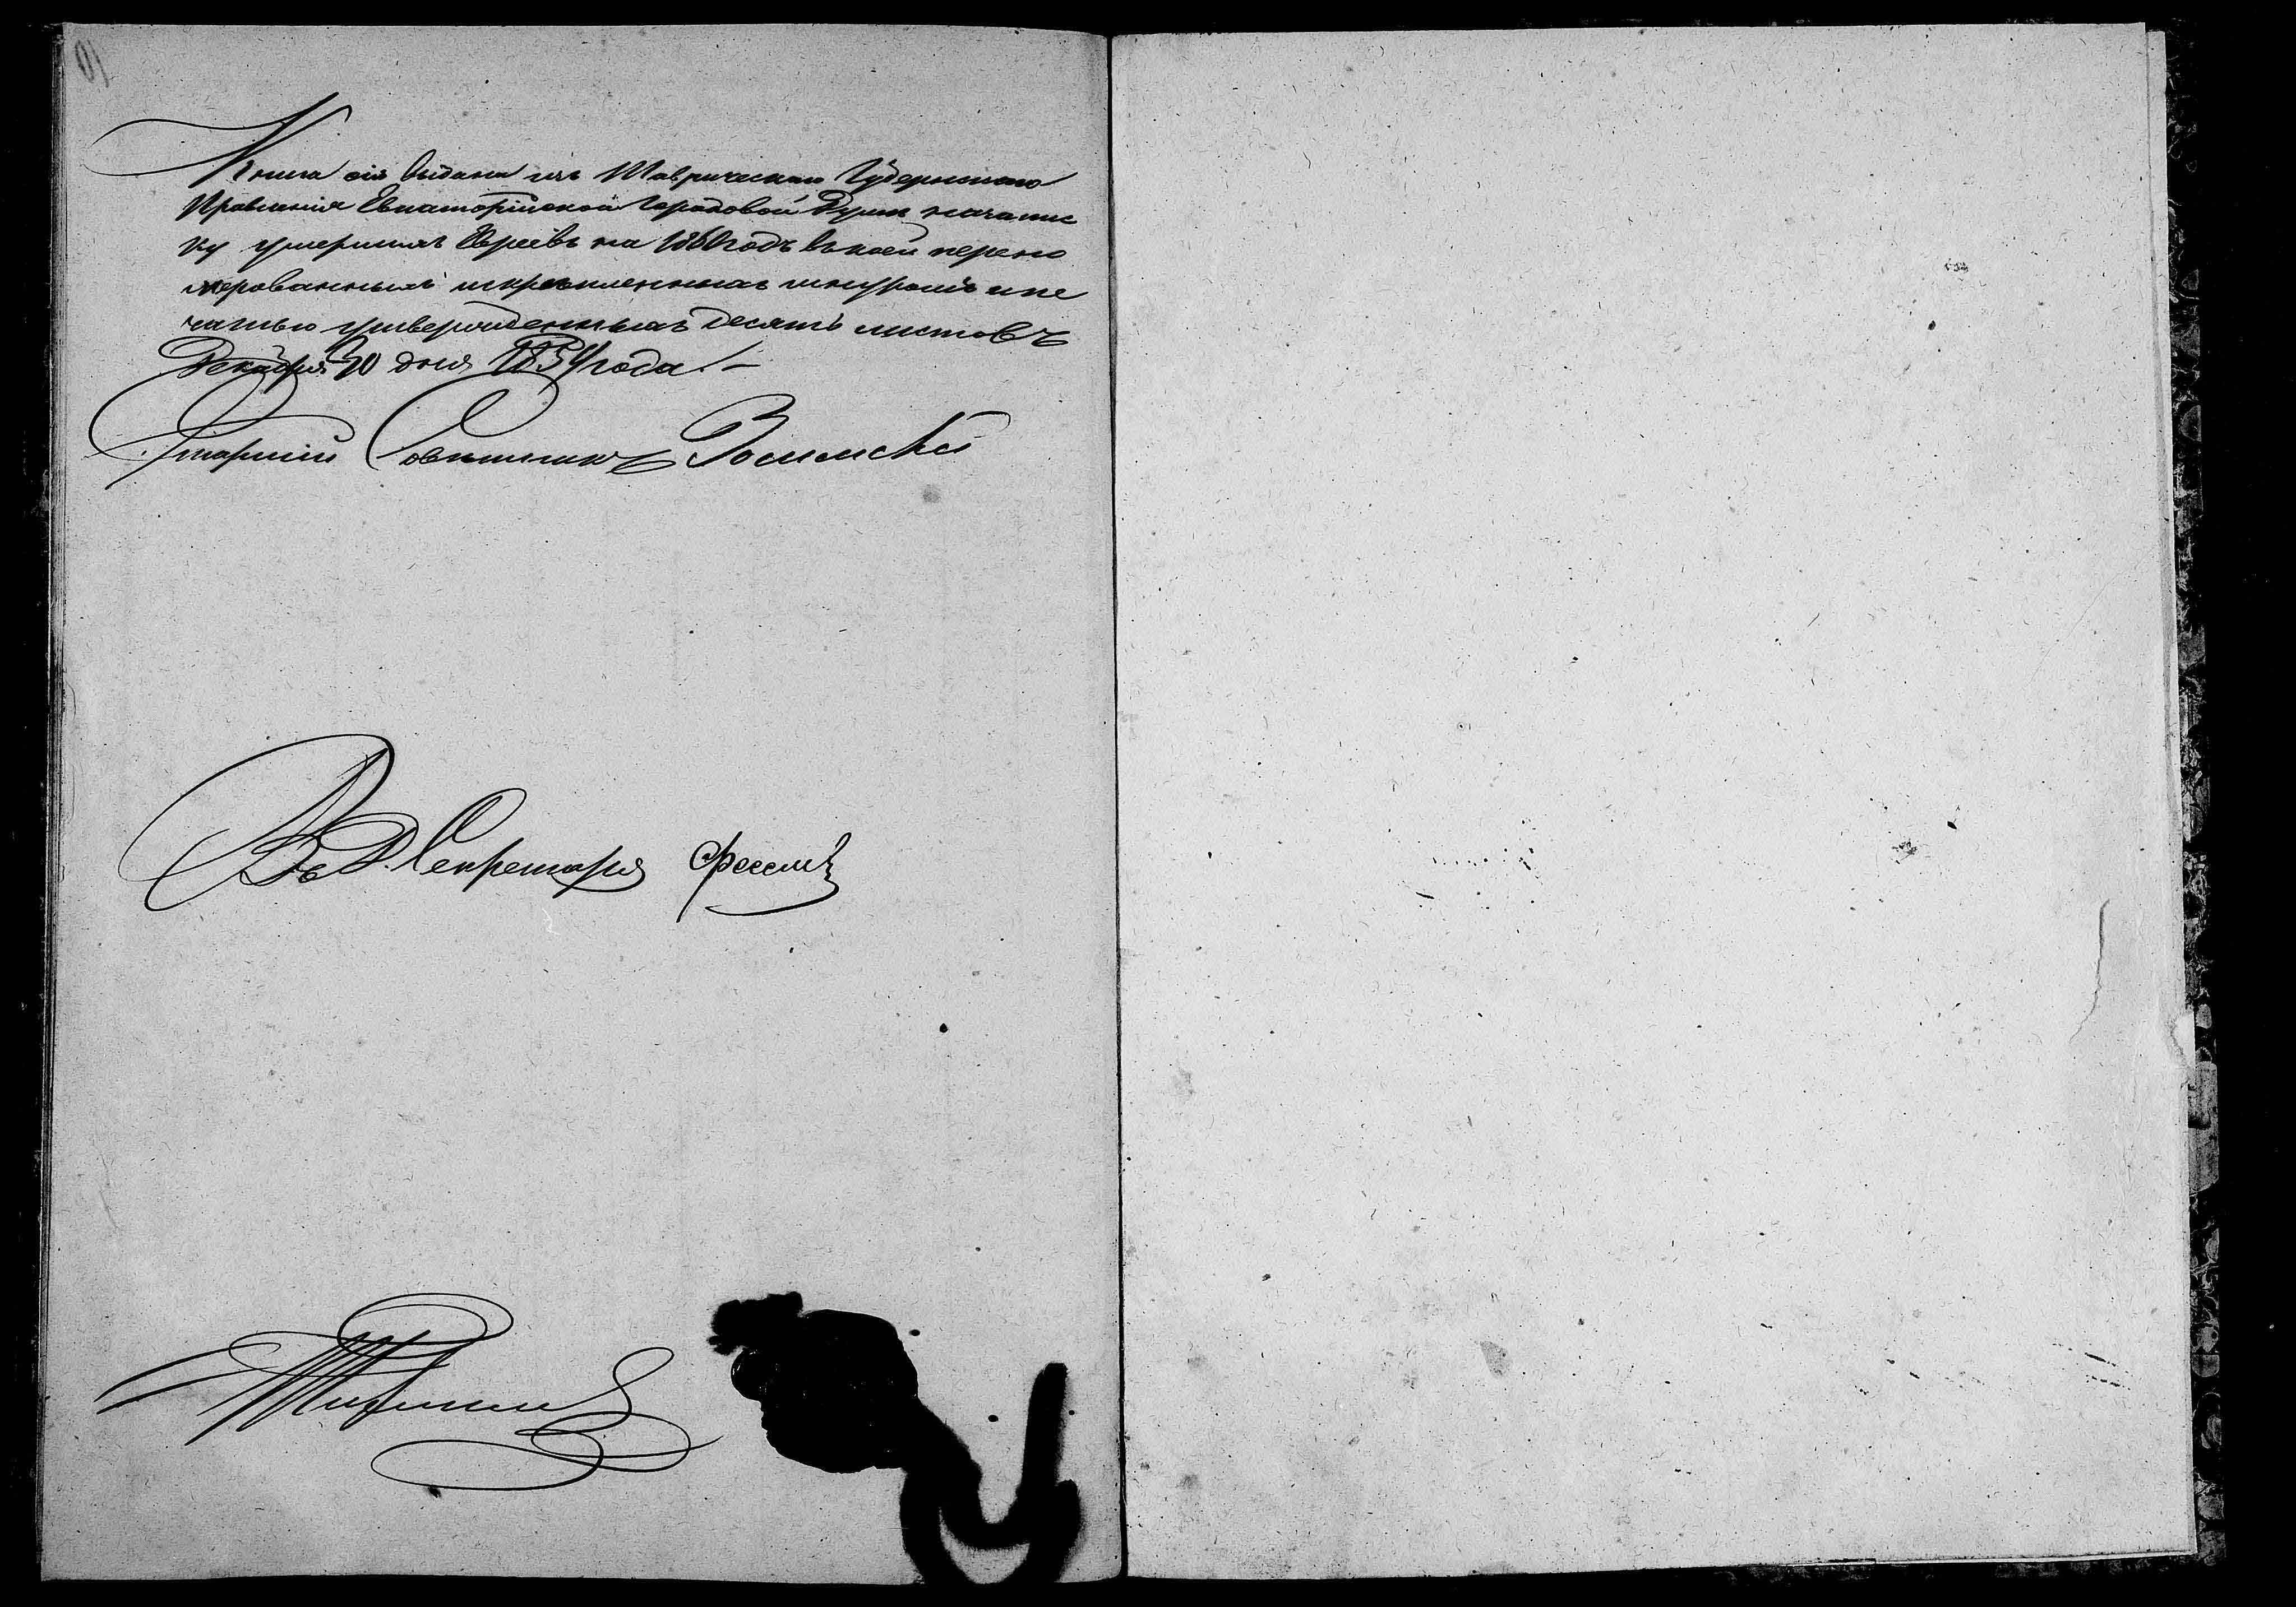 Книга сія выдана изъ Таврическаго Губернскаго
Правленія Евпаторійской Городовой Думѣ на запис
ку умершихъ Евреевъ на 1860 годъ въ коей перену
мерованныхъ и скрепленныхъ шнуромъ и пе
чатью утвержденныхъ десять листовъ
Декабря 30 дня 1859 года. –
Старшій Совѣтникъ
За Секретаря